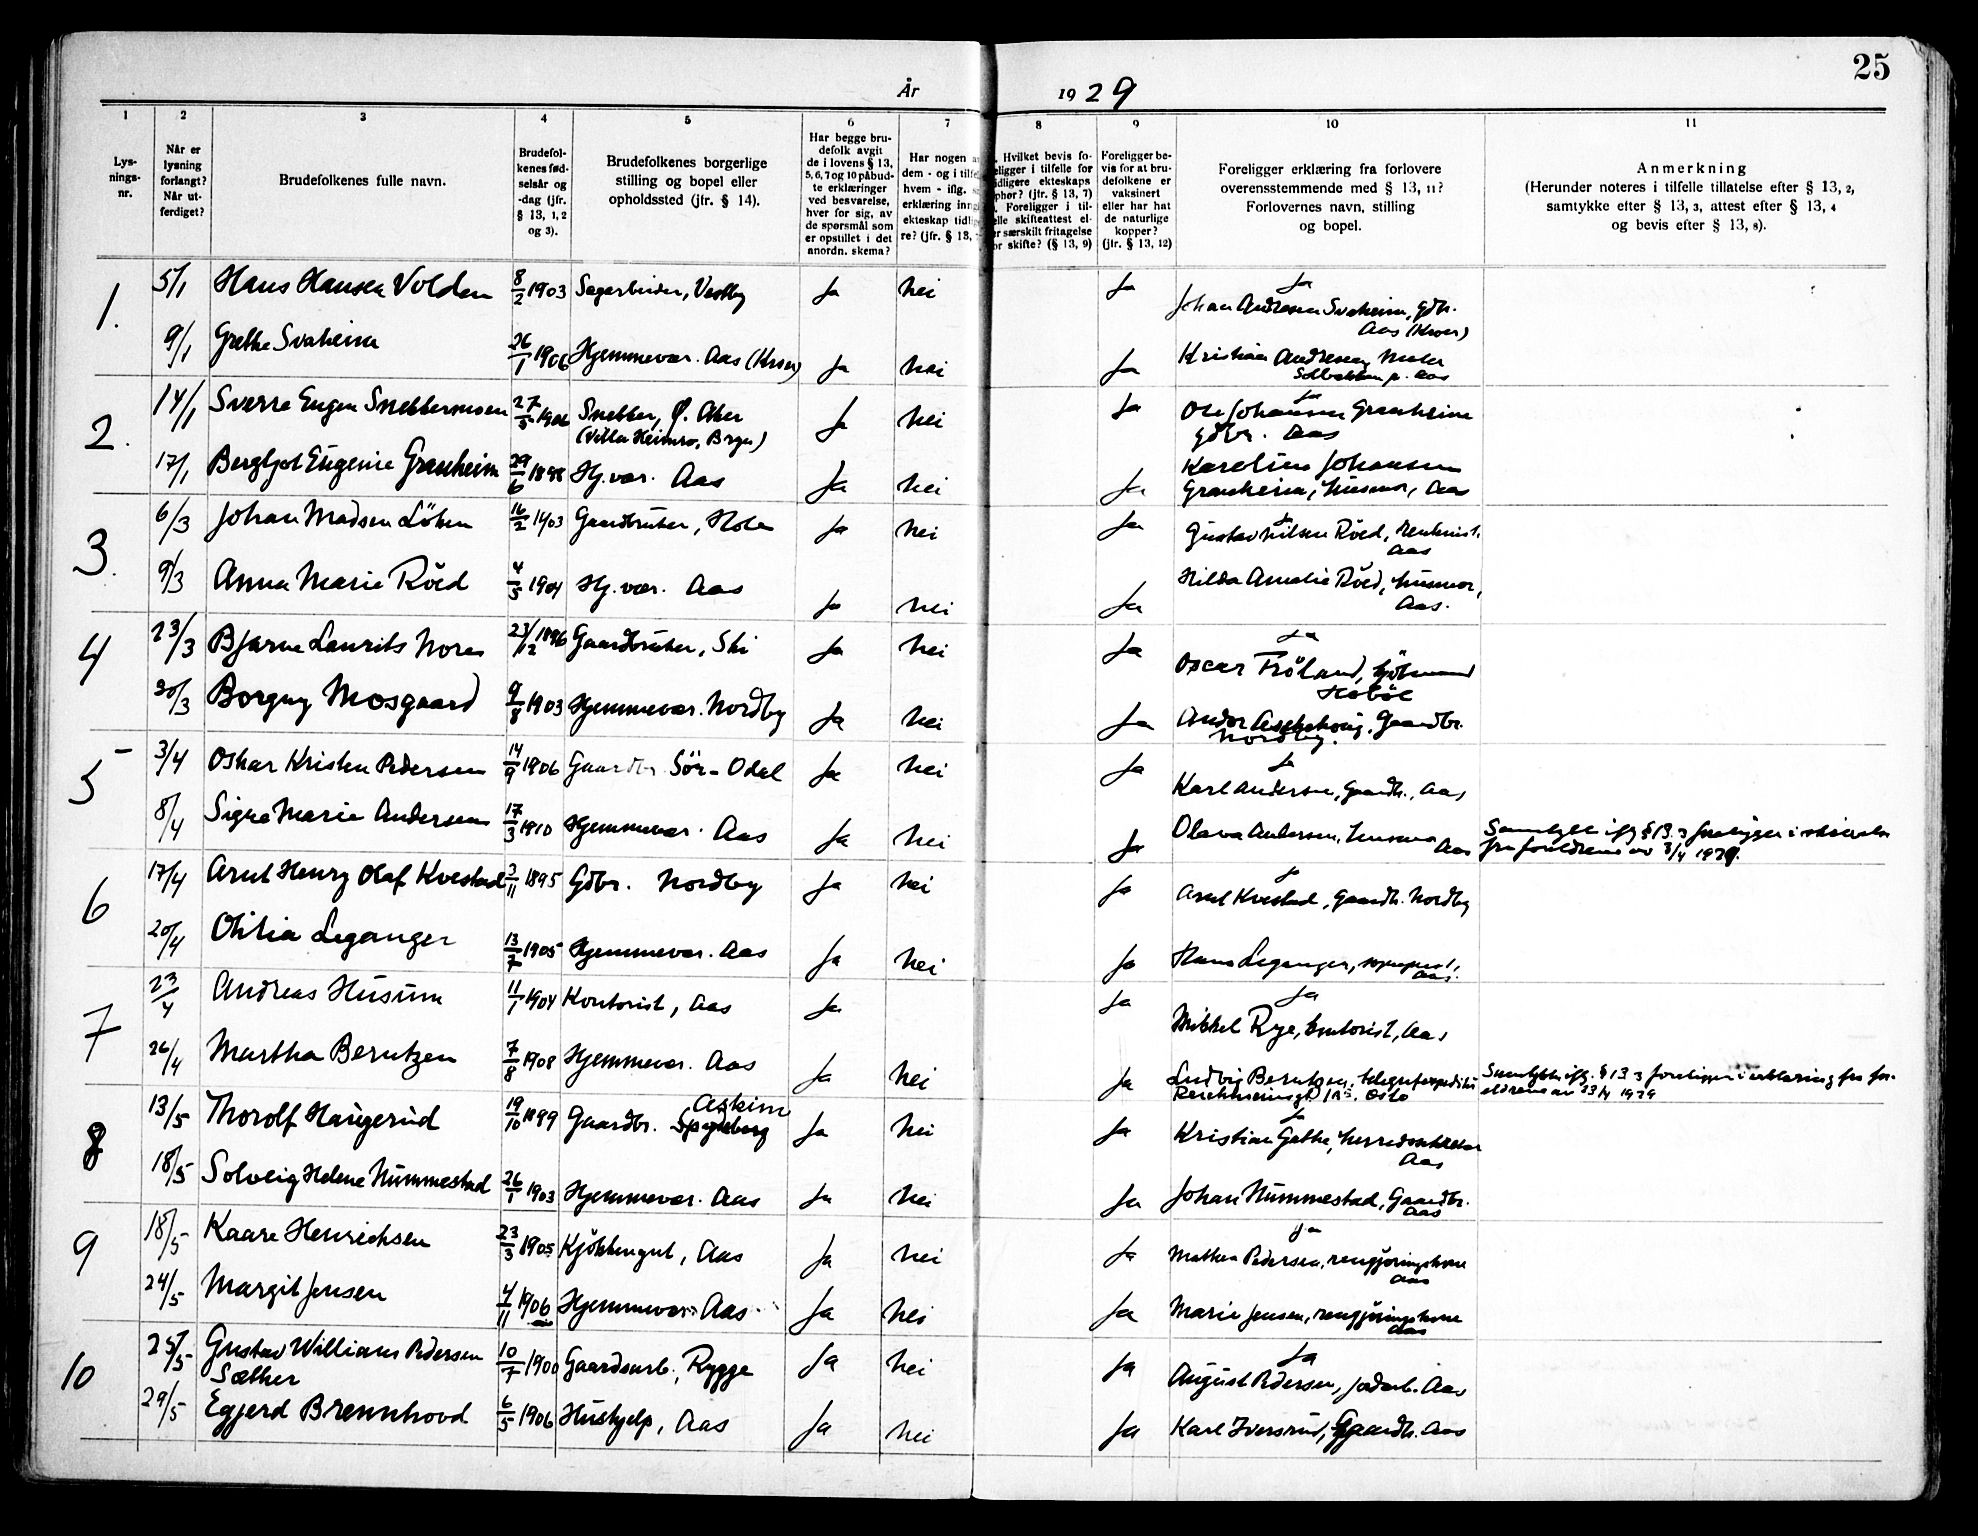 25
År 1929
1 2 3 4 5 6 7 8 9 10 11
Lys-
nings-
nr.
Når er
lysning
forlangt?
Når ut-
ferdiget?
Brudefolkenes fulle navn.
Brudefol-
kenes fød-
selsår og
-dag (jfr.
§ 13, 1, 2
og 3).
Brudefolkenes borgerlige
stilling og bopel eller
opholdssted (jfr. § 14).
Har begge bru-
defolk avgit
de i lovens § 13,
5, 6, 7 og 10 påbud-
te erklæringer
ved besvarelse,
hver for sig, av
de spørsmål som
er opstillet i det
anordn. skema?
Har nogen a
dem - og i tilfe
hvem - iflg.
erklæring inng
ekteskap tidlig
re? (jfr. § 13,
Hvilket bevis fo-
religger i tilfelle for
idligere ekteskaps
phør? (jfr. § 13, 7)
Foreligger i til-
elle skifteattest el-
r særskilt fritagelse
or skifte? (§ 13, 9)
Foreligger be-
vis for at bru-
defolkene er
vaksinert
eller har hat
de naturlige
kopper?
(jfr. § 13, 12)
Foreligger erklæring fra forlovere
overensstemmende med § 13, 11?
Forlovernes navn, stilling
og bopel.
Anmerkning
(Herunder noteres i tilfelle tillatelse efter § 13, 2,
samtykke efter § 13, 3, attest efter § 13, 4
og bevis efter § 13, 8).
1. 5/1 Hans Hansen Volden 8/2 1903 Sagarbeider, Vestby Ja Nei Ja Ja
Johan Andresen Svaheim, gdbr.
Aas (Kroer)
9/1 Grethe Svaheim 26/1 1906 Hjemmevær. Aas (Kroer) Ja Nei Ja Kristian Andresen, Maler
Solbakken p. Aas
2. 14/1 Sverre Eugen Snekkermoen 27/5 1906 Snekker, Ø. Aker Ja Nei Ja Ja
Ole Johansen Granheim
(Villa Heimro, Bryn) gdbr. Aas
17/1 Bergljot Eugenie Granheim 29/6 1898 Hj.vær. Aas Ja Nei Ja Karoline Johansen
Granheim, husmor, Aas
3. 6/3 Johan Madsen Löken 16/2 1903 Gaardbruker, Hole Ja Nei Ja Ja
Gustav Nilsen Röed, Rentenist.
Aas
9/3 Anna Marie Röed 4/5 1904 Hj.vær. Aas Ja Nei Ja Hilda Amalie Röed, husmor,
Aas.
4 23/3 Bjarne Laurits Nores 23/12 1896 Gaardbruker, Ski Ja Nei Ja Ja
Oscar Fröland,
Hobøl
30/3 Borgny Mosgaard 9/8 1903 Hjemmevær. Nordby Ja Nei Ja Andor Aschehoug, Gaardbr.
Nordby.
5 3/4 Oskar Kristen Pedersen 14/9 1906 Gaardbr Sör-Odal Ja Nei Ja Ja
Karl Andersen, Gaardbr., Aas
8/4 Signe Marie Andersen 17/3 1910 Hjemmevær. Aas Ja Nei Ja Olava Andersen, husmor Aas Samtykke iflg § 13. 3 foreligger i skrivelse
fra foreldrene av 3/4 1929.
6 17/4 Arnt Henry Olaf Kvestad 3/11 1895 Gdbr. Nordby Ja Nei Ja Ja
Arnt Kvestad, Gaardbr. Nordby
20/4 Olitia Leganger 13/7 1905 Hjemmevær. Aas Ja Nei Ja Hans Leganger, sogneprest,
Aas.
7 23/4 Andreas Husum 11/1 1904 Kontorist, Aas Ja Ja Ja
Mikkel Rye, kontorist, Aas
26/4 Martha Berntzen 7/8 1908 Hjemmevær. Aas Ja Nei Ja Ludvig Berntzen, telegrafexpeditör Samtykke iflg. § 13 3 foreligger i erklæring fra for-
Oslo eldrene av 23/4 1929
8 13/5 Thorolf Haugerud 19/10 1899 Gaardbr. Askim Spydeberg Ja Nei Ja Ja
Kristian Gathe, herredskasserer
Aas
18/5 Solveig Helene Hummestad 26/1 1903 Hjemmevær. Aas Ja Nei Ja Johan Hummestad, Gaardbr.
Aas
9 18/5 Kaare Henrichsen 23/3 1905 Kjökkengut, Aas Ja Nei Ja Ja
Mathea Pedersen, rengjöringskone
Aas
24/5 Margit Jensen 4/11 1906 Hjemmevær. Aas Ja Nei Ja Marie Jensen, rengjöringskone
Aas
10 25/5 Gustav William Pedersen 10/7 1900 Gaardsarb., Rygge Ja Nei Ja Ja
Sæther August Pedersen, jordarb. Aas
29/5 Egjerd Brennhovd 6/5 1906 Hushjelp, Aas Ja Nei Ja Karl Iversrud, Gaardbr. Aas